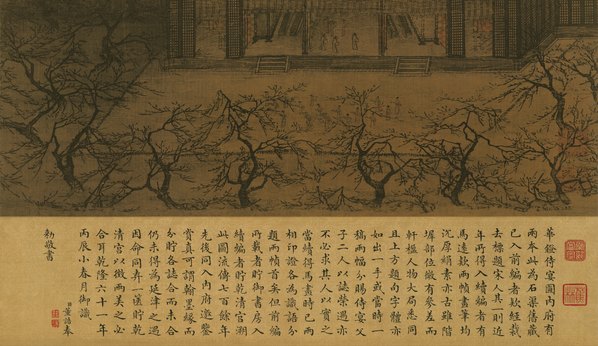 華鐙侍宴圖內府有
兩本此為石渠舊藏
已入前編者款經裁
去標題宋人其一則近
年所得入續編者有
馬遠款兩幀畫筆均
沈厚絹素亦古雖階
墀部位微有參差而
軒楹人物大局悉同
且上方題句字體亦
如出一手或當時一
稿兩幅分賜侍宴父
子二人以誌榮遇亦
不必求其人以實之
當續得馬畫時已兩
相印證各為識語分
題兩幀矣但前編
所載者貯御書房入
續編者貯乾清宮溯
此圖流傳七百餘年
先後同入內府邀鑒
賞真可謂翰墨緣而
分貯各誌合而未合
仍未得為延津之遇
因命同弆一匱貯乾
清宮以徵兩美之必
合耳乾隆六十一年
丙辰小春月御識
臣董誥奉
勅敬書